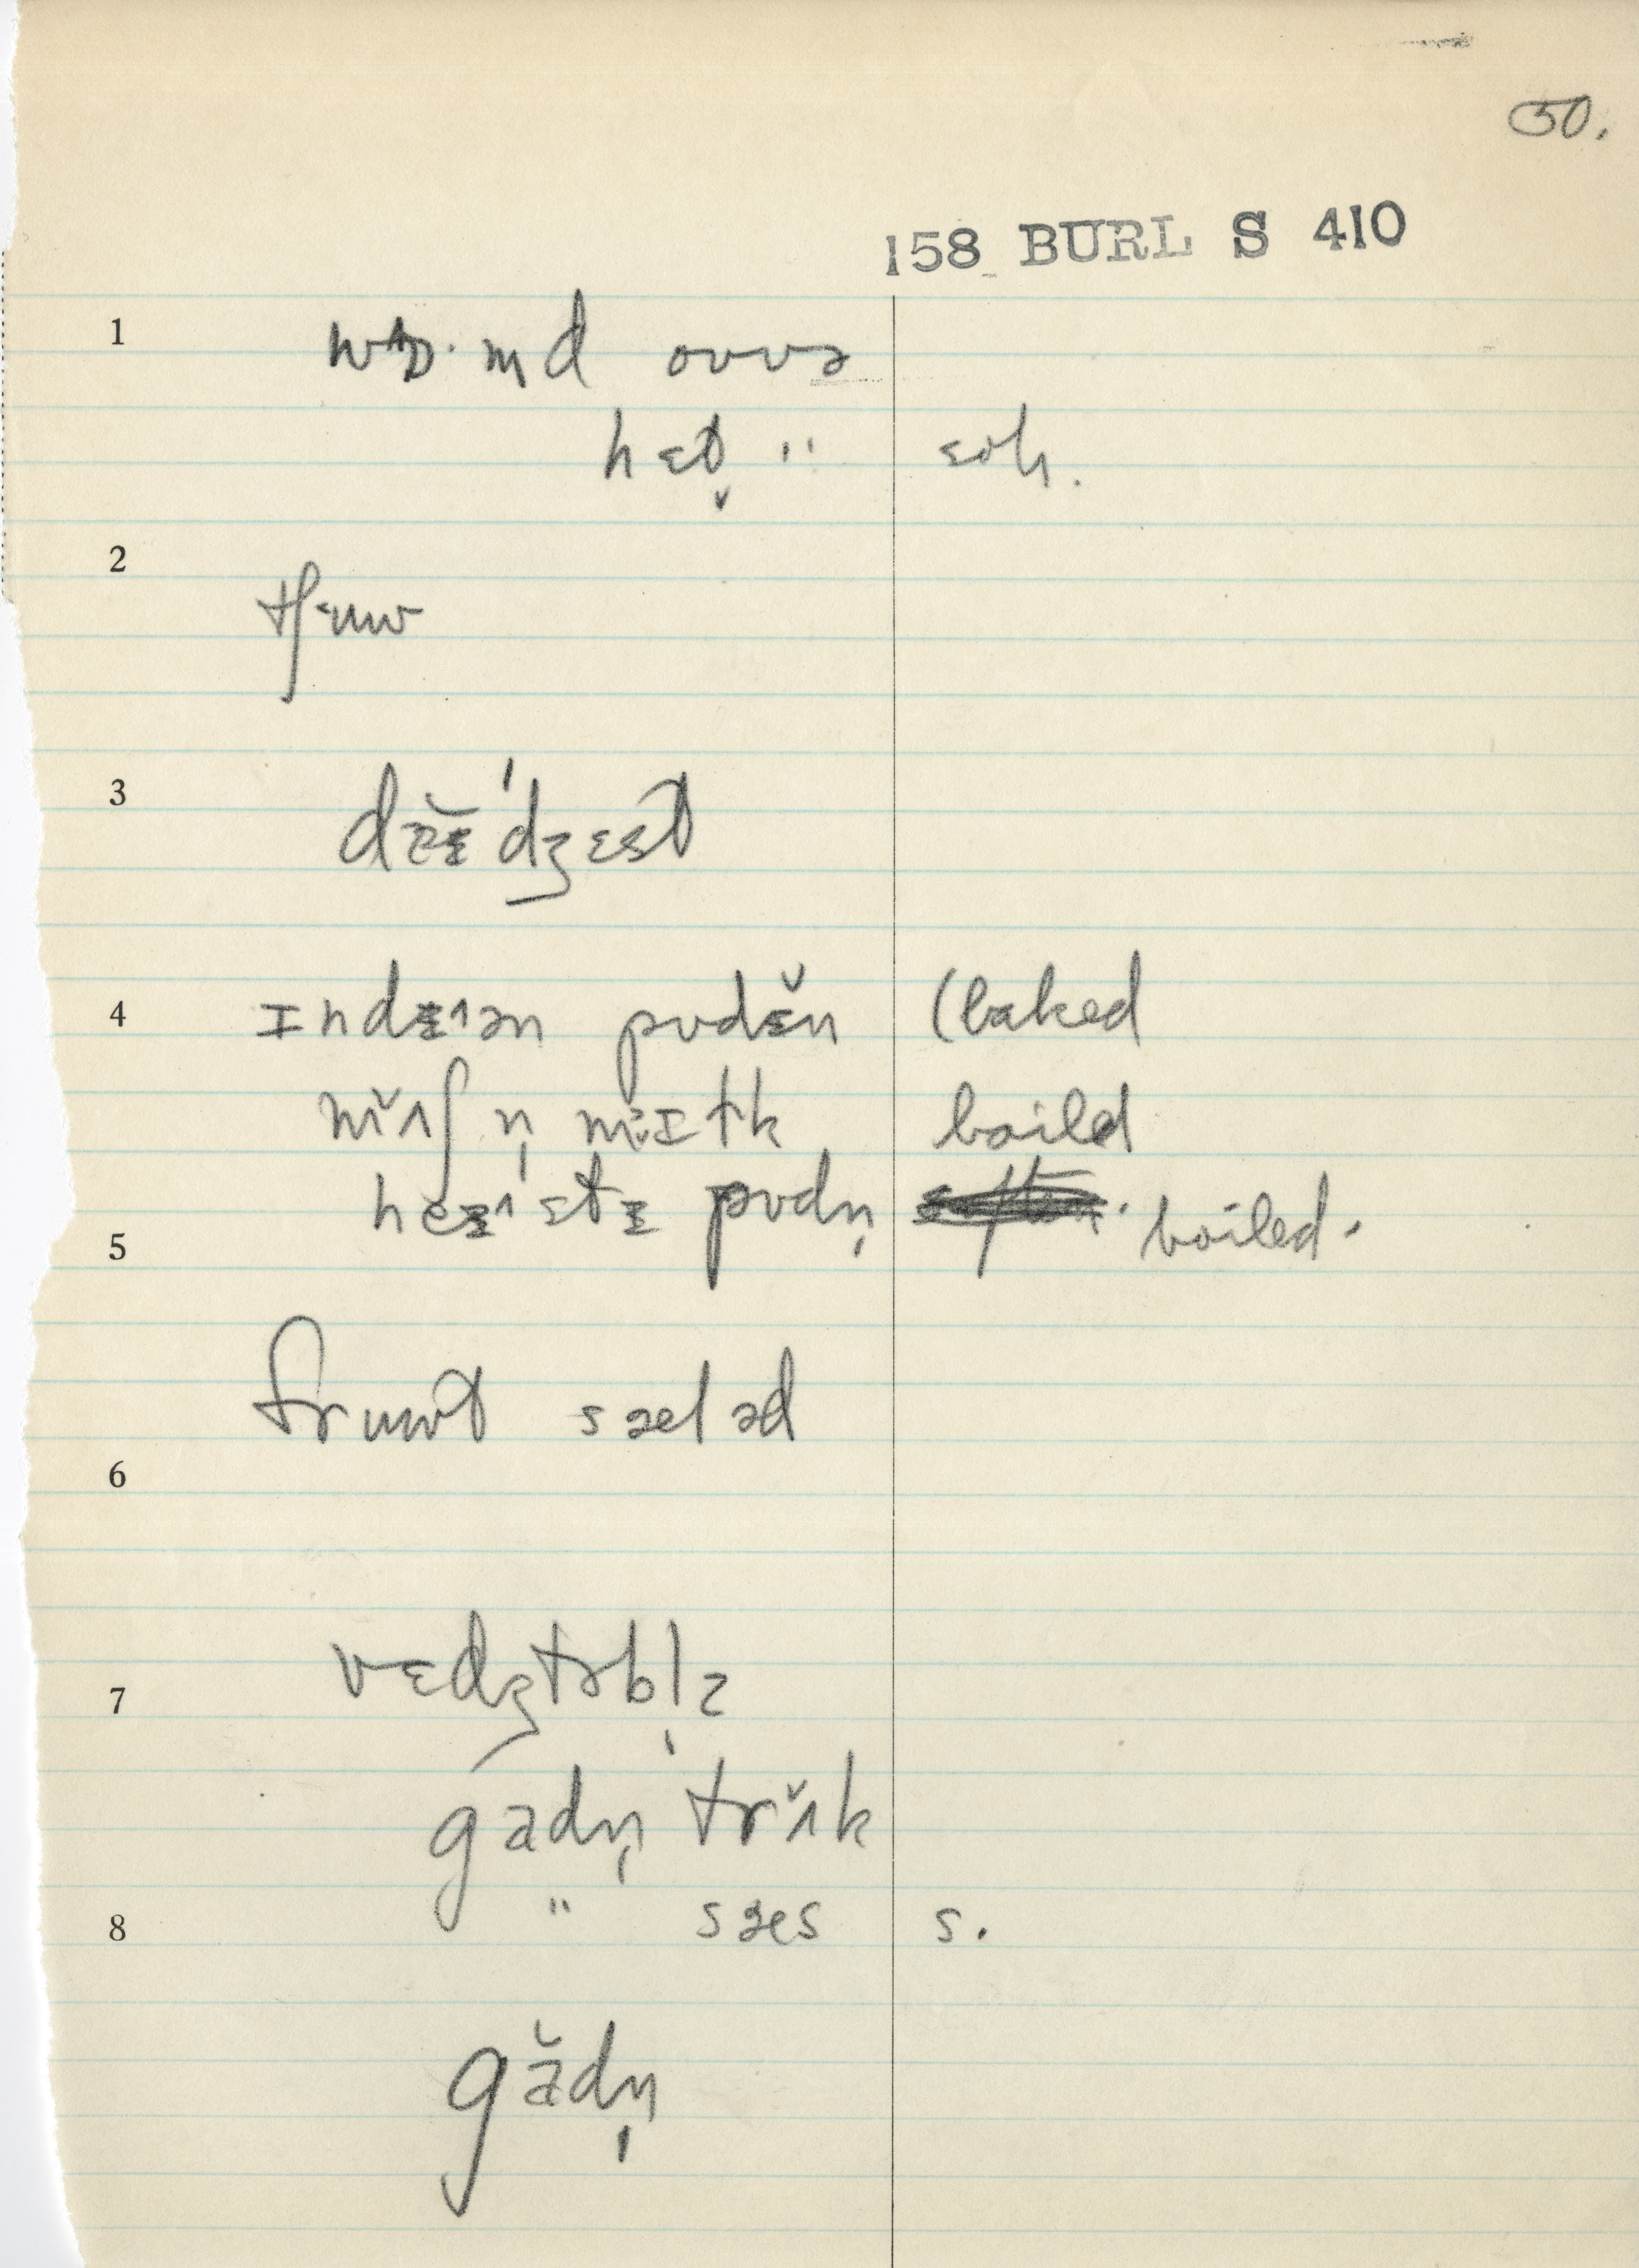 50.
158 BURL S 410
1 wɒ·md ovvə
hɛt̬ " ɛoh.
2 tʃ·uw
3 dɛ̆ᵻ'dʒɛst
4 ɪndᵻʌən pʊdᵻ̆n (baked
mʌ̆ʃ n̩ mɪtk boild
5 heᵻʌstᵻ pʊdn̩ boiled.
fruwt sæləd
6
7 vɛdʒtəbl̩z
gadn̩ trʌ̆k
8 " sæs s.
gădn̩